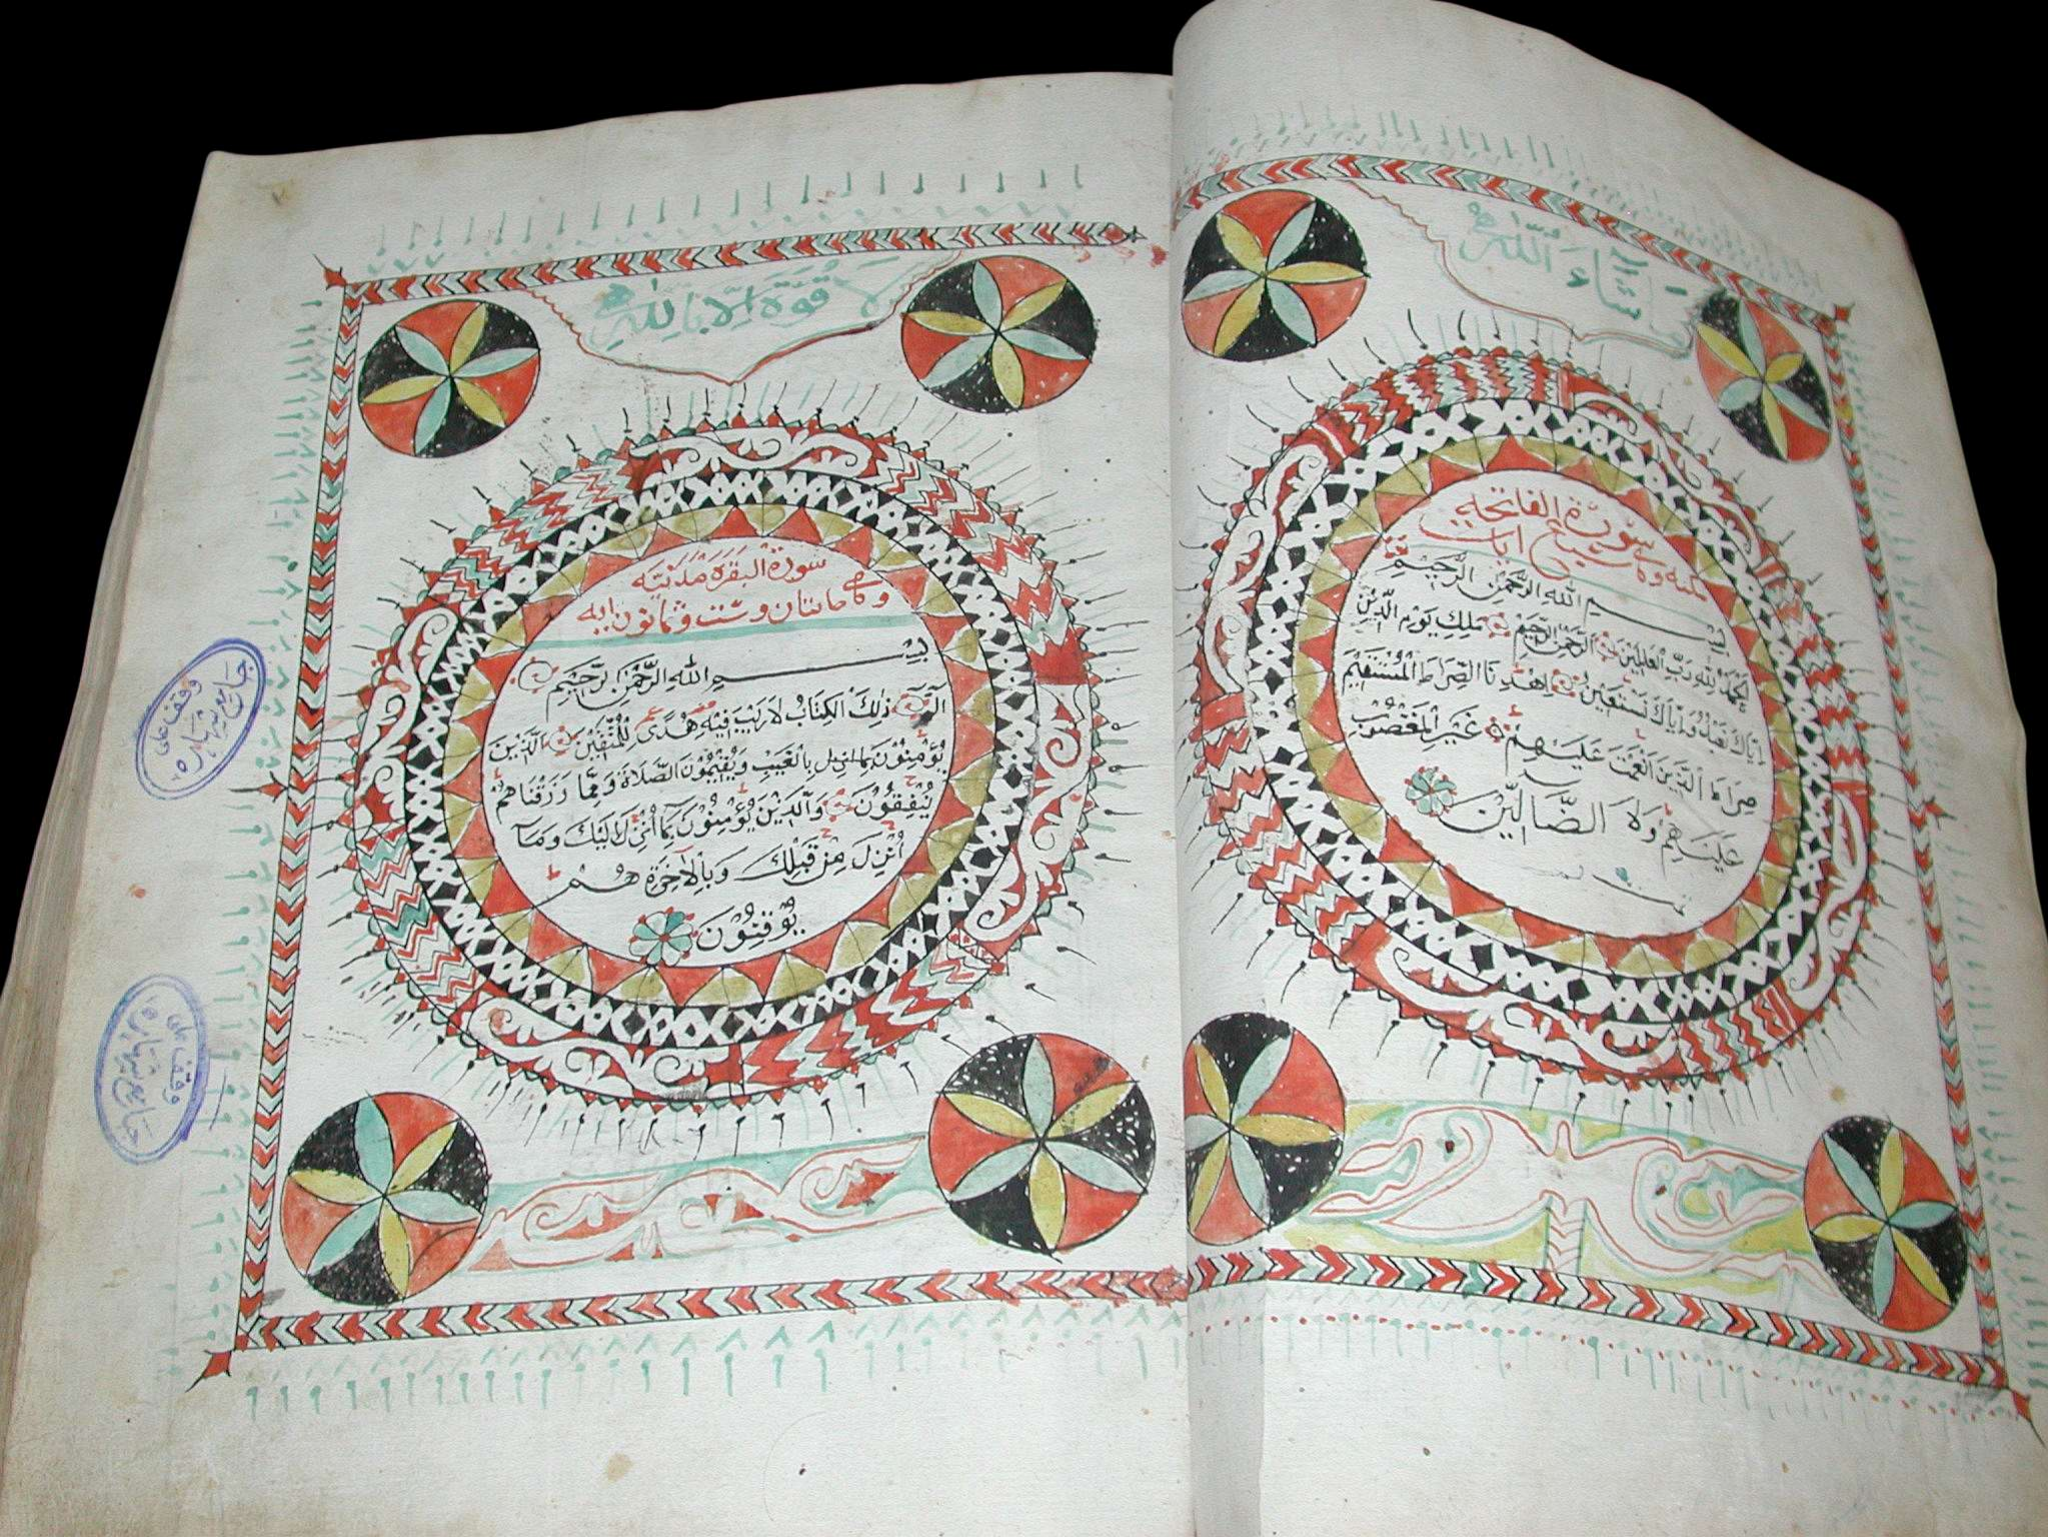 مَا شَآءَ اللّٰه
سورة الفاتحه
مكيه وهي سبع ايات
بِسْمِ اللهِ الرَّحْمٰنِ الرَّحِيْمِ
اَلْحَمْدُ لِلّٰهِ رَبِّ الْعَالَمِيْنَ الرَّحْمٰنِ الرَّحِيْمِ مَلِكِ يَوْمِ الدِّيْنِ
اِيَّاكَ نَعْبُدُ وَاِيَّاكَ نَسْتَعِيْنُ اِهْدِنَا الصِّرَاطَ الْمُسْتَقِيْمَ
صِرَاطَ الَّذِيْنَ اَنْعَمْتَ عَلَيْهِمْ غَيْرِ الْمَغْضُوْبِ
عَلَيْهِمْ وَلَا الضَّالِّيْنَ
لَا قُوَّةَ اِلَّا بِاللّٰهِ
سورة البقره مدنيته
وهي مائتان وست وثمانون ايه
بِسْمِ اللهِ الرَّحْمٰنِ الرَّحِيْمِ
الٓمٓ ذٰلِكَ الْكِتَابُ لَا رَيْبَ فِيْهِ هُدًى لِلْمُتَّقِيْنَ اَلَّذِيْنَ
يُؤْمِنُوْنَ بما انزل بِالْغَيْبِ وَيُقِيْمُوْنَ الصَّلَاةَ وَمِمَّا رَزَقْنَاهُمْ
يُنْفِقُوْنَ وَالَّذِيْنَ يُؤْمِنُوْنَ بِمَا اُنْزِلَ اِلَيْكَ وَمَآ
اُنْزِلَ مِنْ قَبْلِكَ وَبِالْاٰخِرَةِ هُمْ
يُوْقِنُوْنَ
وقف على
جامع شهاره
وقف على
جامع شهاره